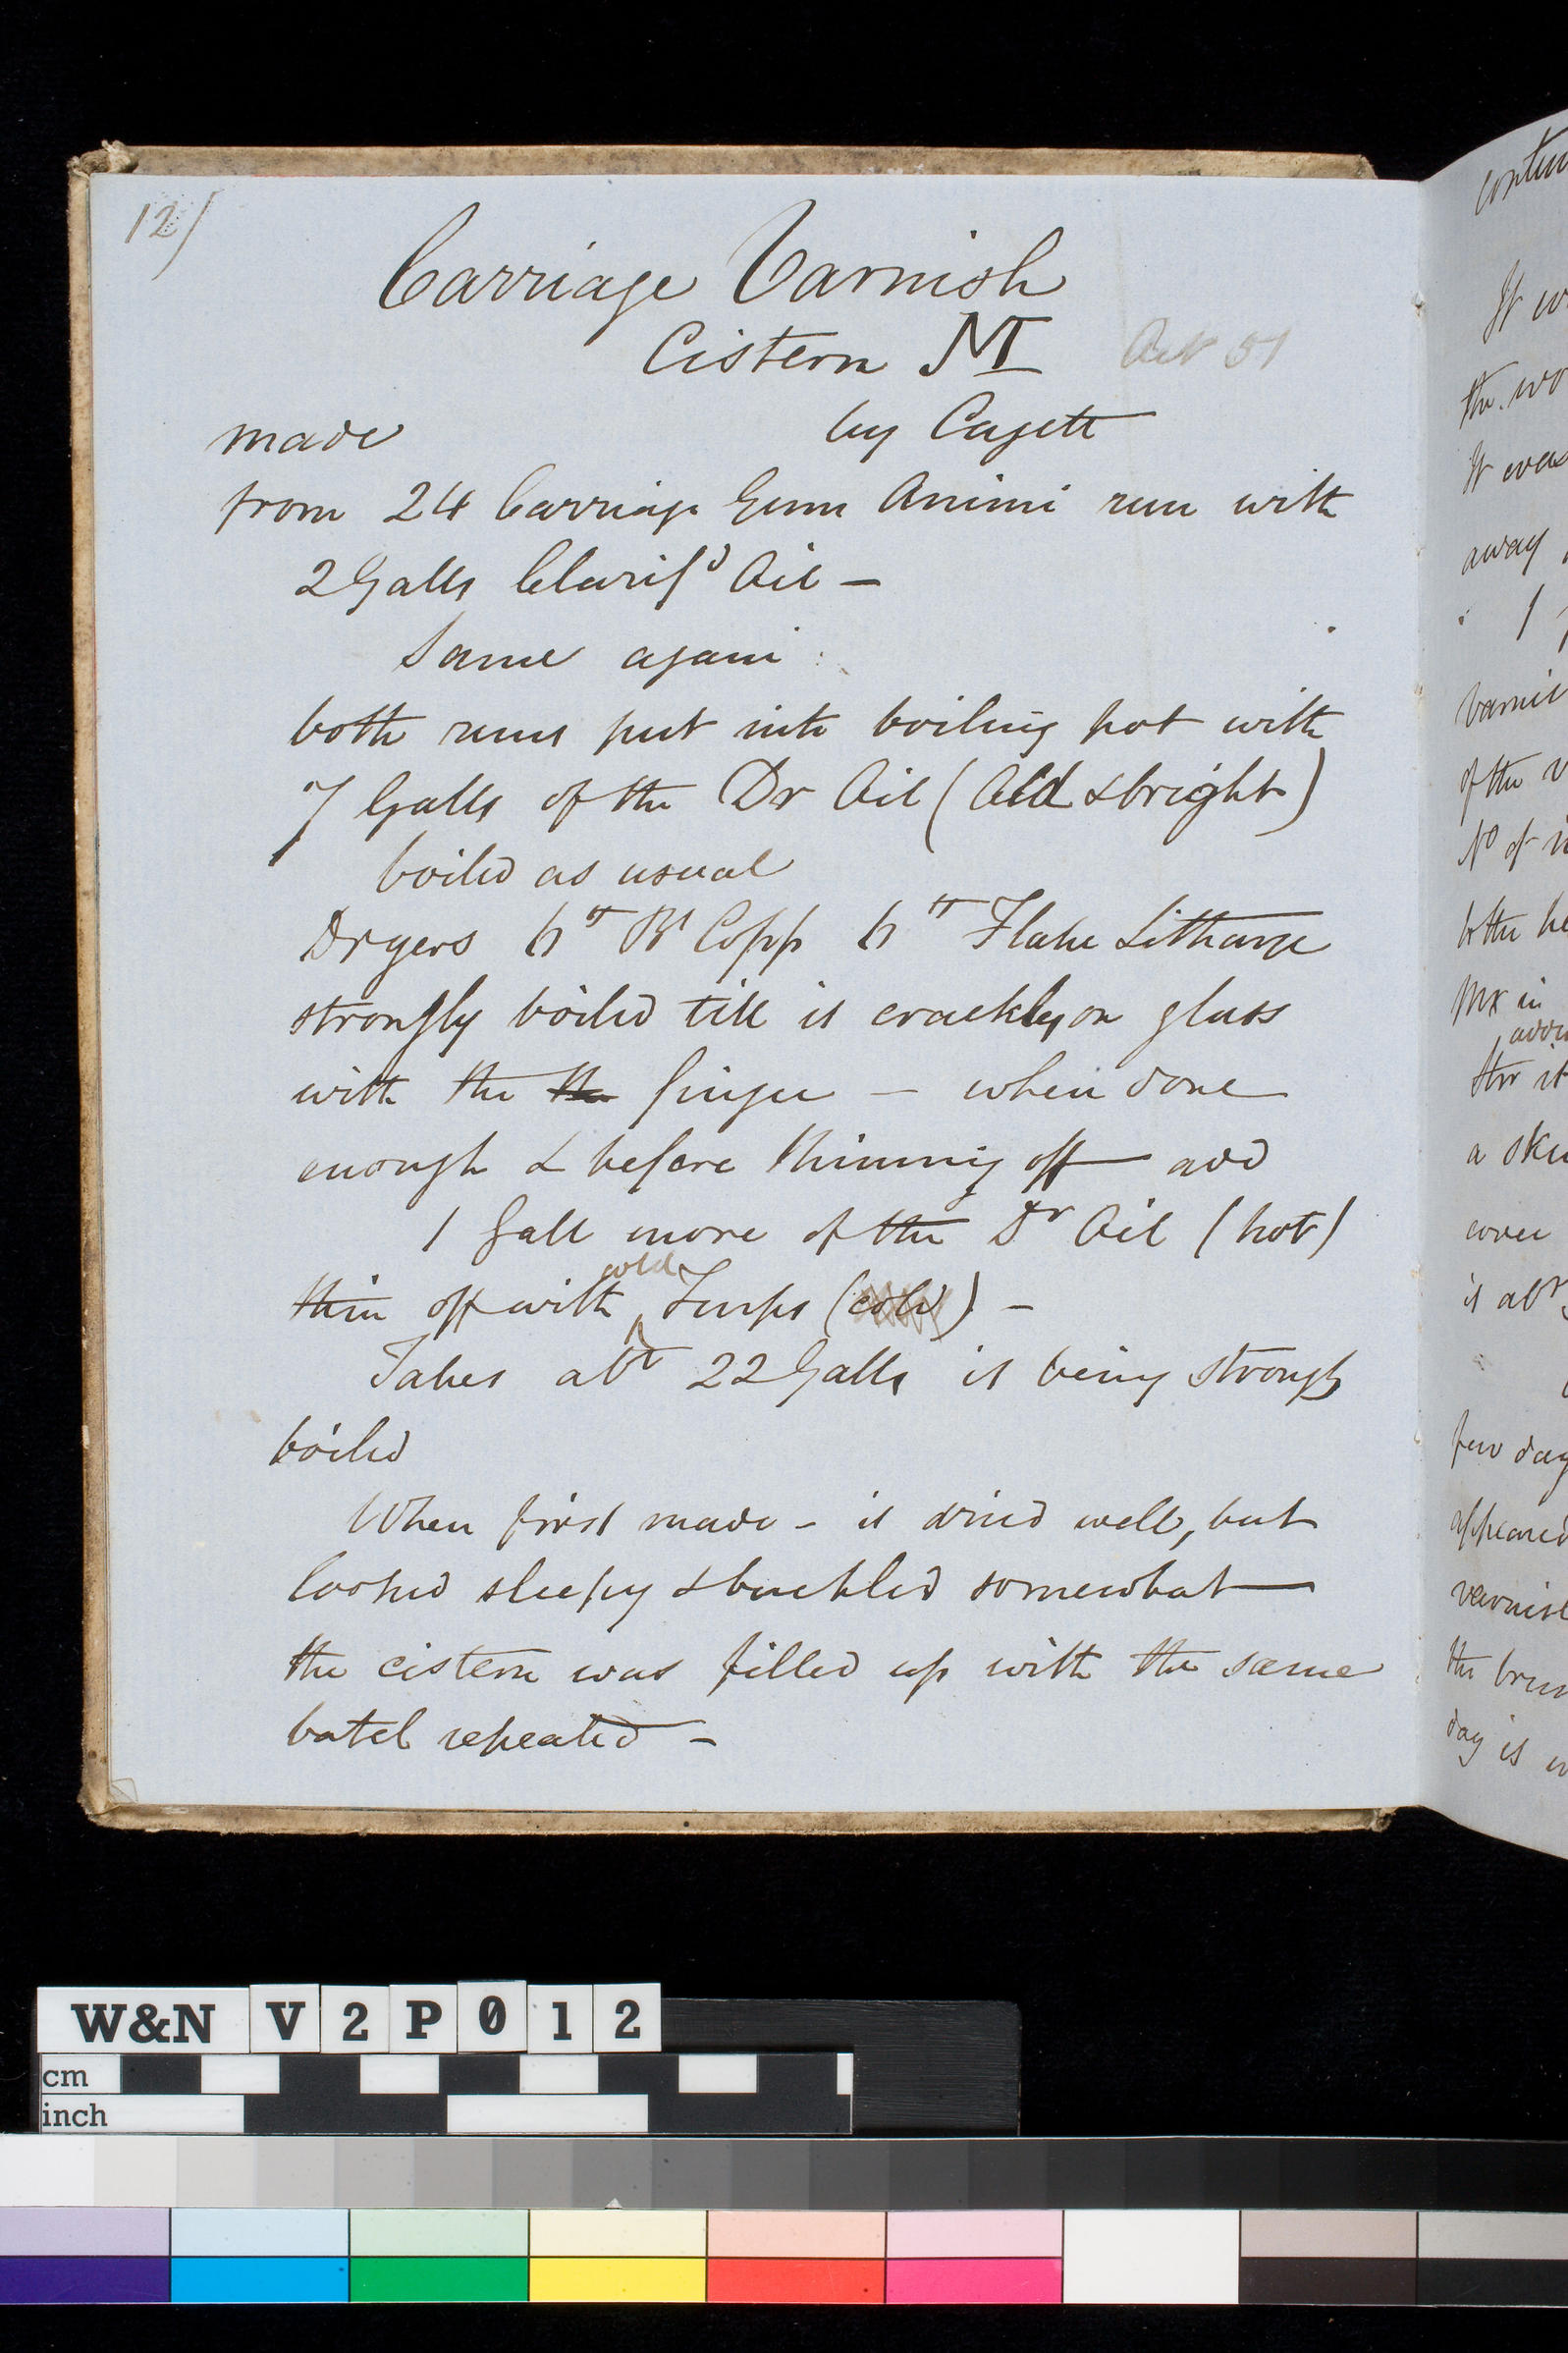 12/
Carriage Varnish
Cistern M Oct 51
made by Cagett
from 24 Carriage Gum Animi run with
2 Galls Clarifd Oil –
Same again
both runs put into boiling pot with
7 Galls of the Dr Oil (Old & bright)
boiled as usual
Dryers Copp Flake Litharge
strongly boiled till it crackles on glass
with the the finger – when done
enough & before thinning off add
1 Gall more of the Dr Oil (hot)
cold
thin off with Turps (cold) –
Takes abt 22 Galls it being strongly
boiled
When first made – it dried well, but
looked sleepy & buckled somewhat
the cistern was filled up with the same
batch repeated –
contin
It w
the wo
It was
away
1
varnis
of the v
No of
to the he
Mx in
a sk
cover
is abt
few day
appeared
varnish
the brus
day is w
W&N V 2 P 0 1 2
cm
inch